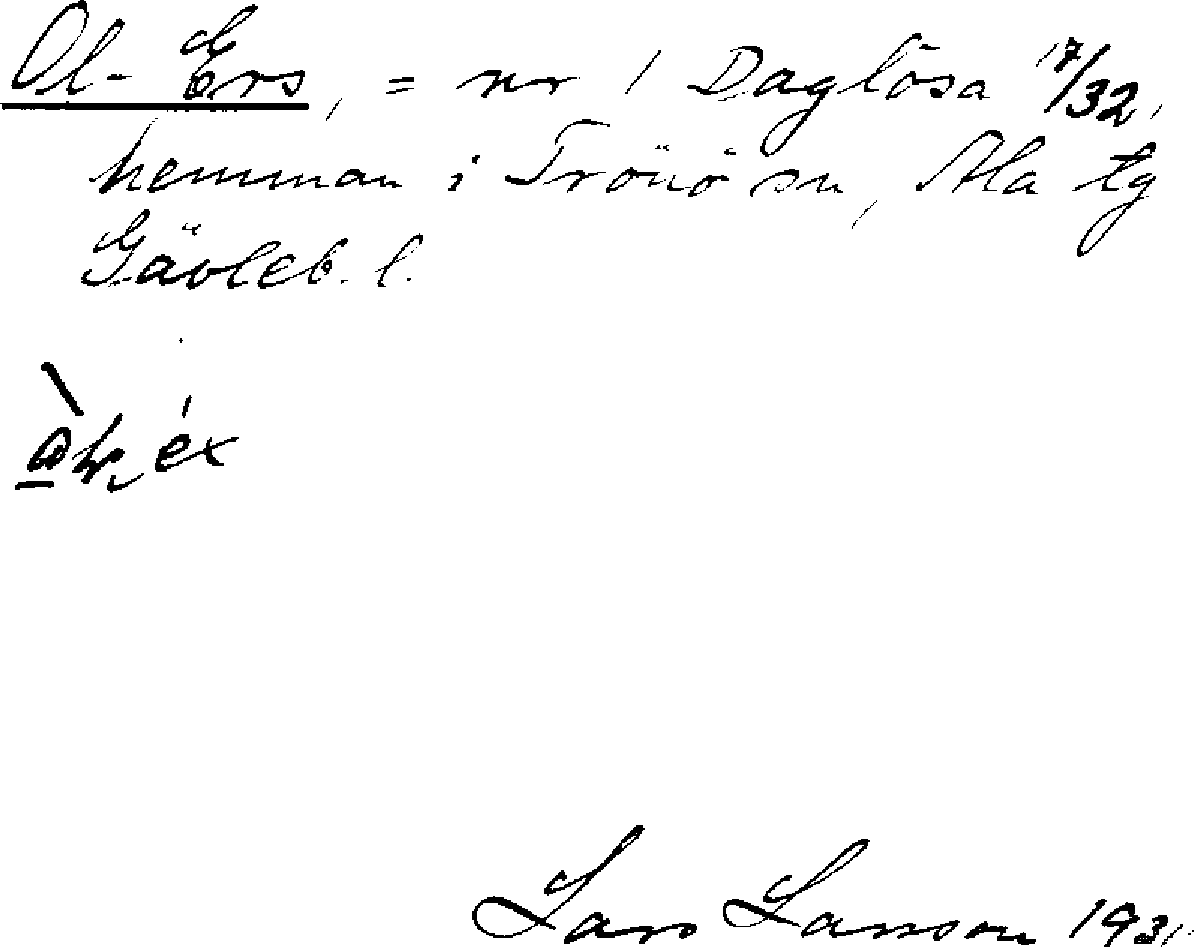 Ol-Ers, = nr 1 Daglösa 17/32,
hemman i Trönö sn, Ala tg
Gävleb. l.
Lars Larsson 193